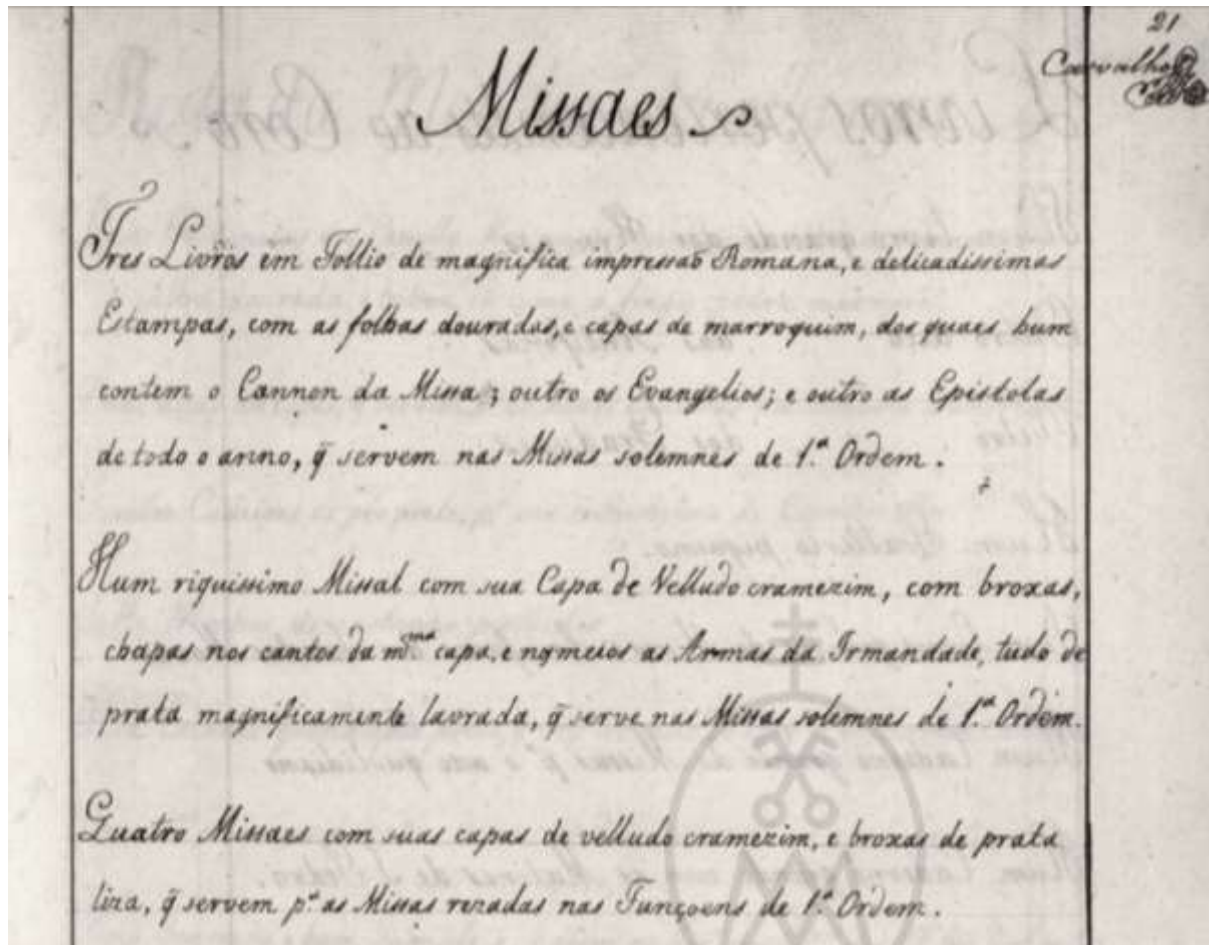 21
Carvalho
Missaes
Tres Livros em Follio de magnifica impressaõ Romana, e delicadissimas
Estampas, com as folhas douradas, e capas de marroquim, dos quaes hum
contem o Cannon da Missa; outro os Evangelios; e outro as Epistolas
de todo o anno, q̃ servem nas Missas solemnes de 1.ª Ordem.
Hum riquissimo Missal com sua Capa de Velludo cramezim, com broxas,
chapas nos cantos da m.ma capa, e no meio as Armas da Irmandade, tudo de
prata magnificamente lavrada, q̃ serve nas Missas solemnes de 1.ª Ordem.
Quatro Missaes com suas capas de velludo cramezim, e broxas de prata
liza, q̃ servem p.ª as Missas rezadas nas Funçoens de 1.ª Ordem.